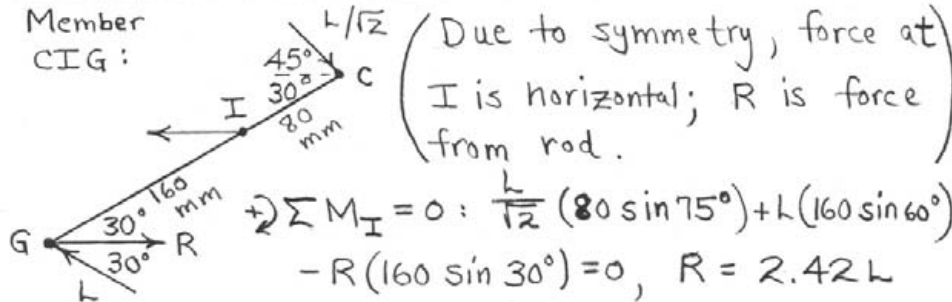 Member
CIG:
L/√2
45°
30°
C
I
80
mm
160
mm
G
30°
R
30°
L
(Due to symmetry, force at
I is horizontal; R is force
from rod.)
+) ΣM_I = 0: L/√2 (80 sin 75°) + L(160 sin 60°)
- R(160 sin 30°) = 0, R = 2.42 L